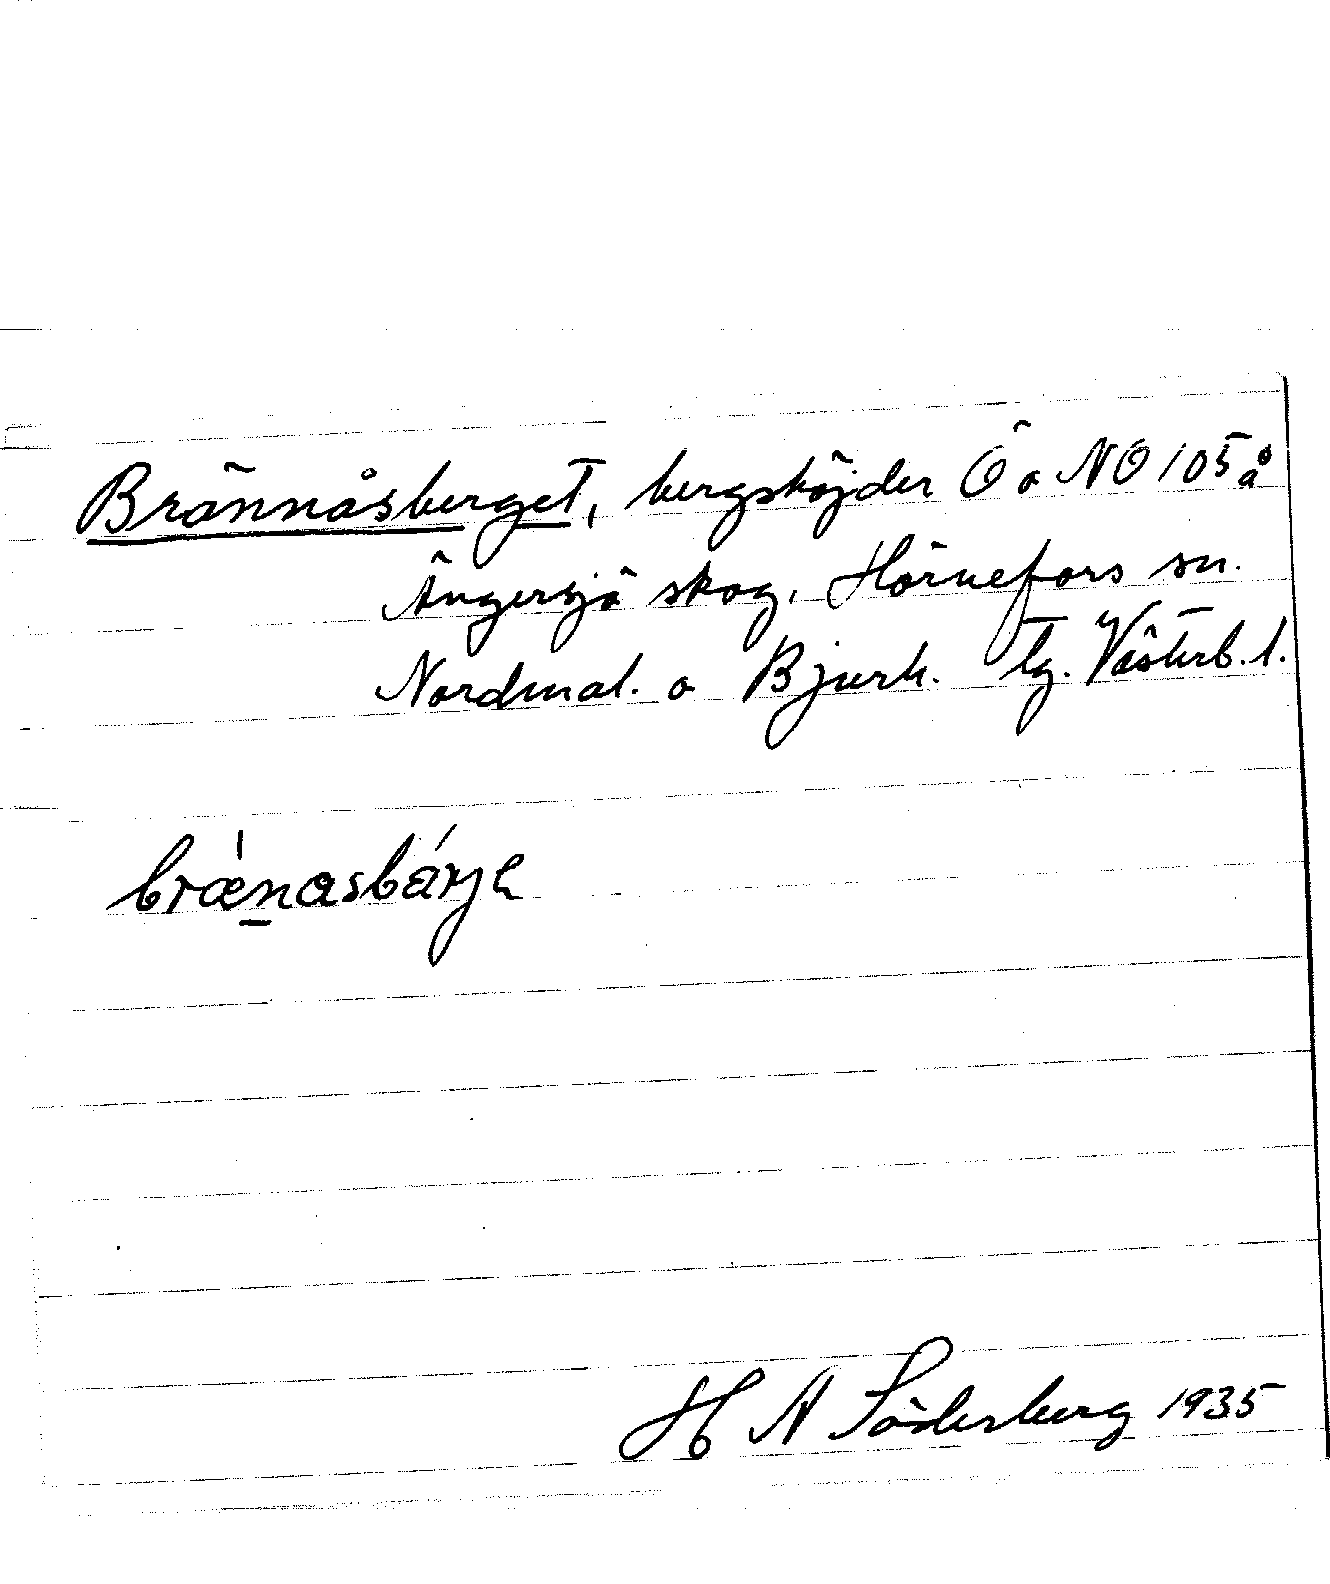 Brännåsberget, bergshöjder Ö o NO 105 å
Ängersjö skog, Hörnefors sn.
Nordmal. o Bjurh. tg. Västerb. l.
brænasbárje
H A Söderberg 1935